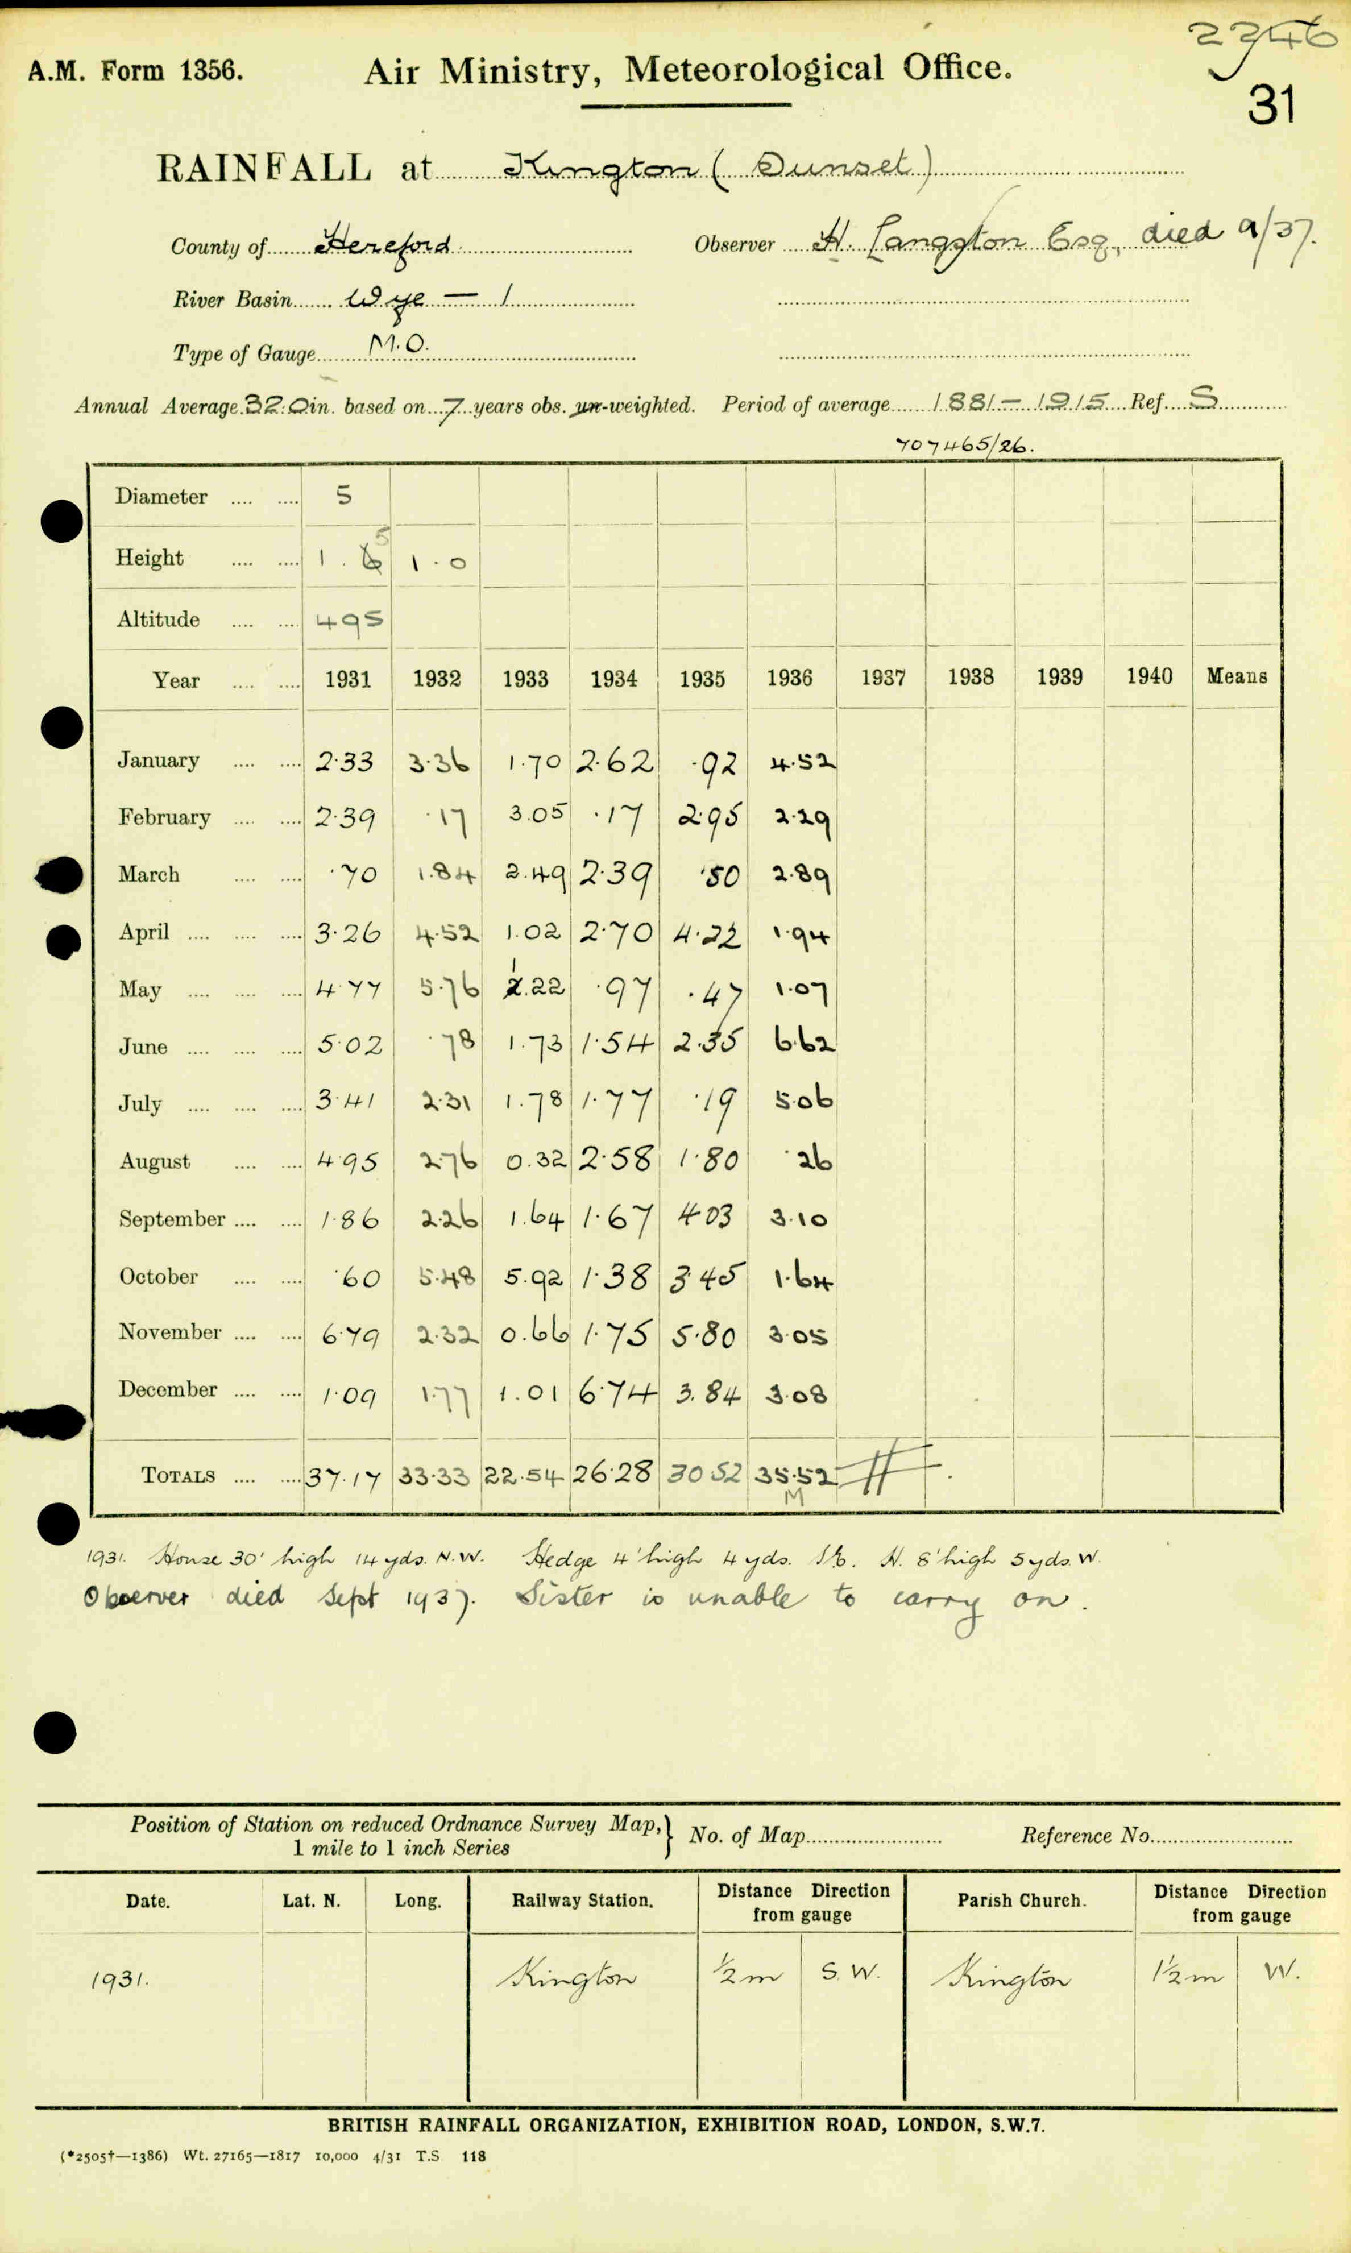 2346
A.M. Form 1356. Air Ministry, Meteorological Office.
31
RAINFALL at Kington ( Sunset )
County of Hereford Observer H. Langston Esq, died 9/37.
River Basin Wye — 1
Type of Gauge M.O.
Annual Average 32.0 in. based on 7 years obs. un-weighted. Period of average 1881 — 1915 Ref. S
707465/26.
Diameter .... .... 5
Height .... .... 1 . 6 5 1 . 0
Altitude .... .... 495
Year .... .... 1931 1932 1933 1934 1935 1936 1937 1938 1939 1940 Means
January .... .... 2.33 3.36 1.70 2.62 .92 4.52
February .... .... 2.39 .17 3.05 .17 2.95 2.29
March .... .... .70 1.84 2.49 2.39 .50 2.89
April .... .... .... 3.26 4.52 1.02 2.70 4.22 1.94
May .... .... .... 4.77 5.76 2 1.22 .97 .47 1.07
June .... .... .... 5.02 .78 1.73 1.54 2.35 6.62
July .... .... .... 3.41 2.31 1.78 1.77 .19 5.06
August .... .... 4.95 2.76 0.32 2.58 1.80 .26
September .... .... 1.86 2.26 1.64 1.67 4.03 3.10
October .... .... .60 5.48 5.92 1.38 3.45 1.64
November .... .... 6.79 2.32 0.66 1.75 5.80 3.05
December .... .... 1.09 1.77 1.01 6.74 3.84 3.08
TOTALS .... .... 37.17 33.33 22.54 26.28 30 52 35.52
M
1931. House 30' high 14 yds. N.W. Hedge 4' high 4 yds. H. 8' high 5 yds. W.
Observer died Sept 1937. Sister is unable to carry on.
Position of Station on reduced Ordnance Survey Map,} No. of Map Reference No.
1 mile to 1 inch Series
Date. Lat. N. Long. Railway Station. Distance Direction from gauge Parish Church. Distance Direction from gauge
1931. Kington ½ m S.W. Kington 1½ m W.
BRITISH RAINFALL ORGANIZATION, EXHIBITION ROAD, LONDON, S.W.7.
(*2505†—1386) Wt. 27165—1817 10,000 4/31 T.S 118